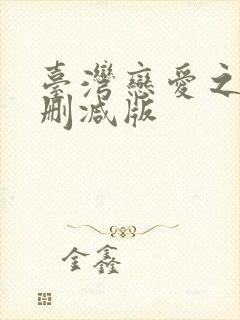 臺灣戀愛之
刪减版
金鑫